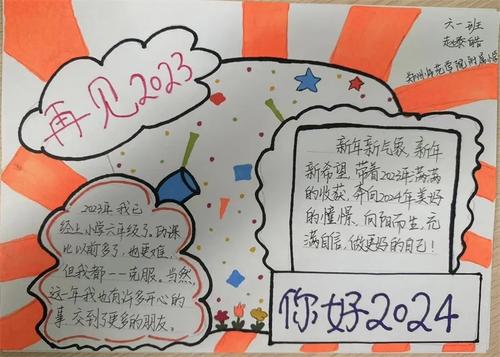 再见2023
六一班
赵泰皓
郑州师范学院附属小学
2023年,我已
经上小学六年级了,功课
比以前多了,也更难,
但我都一一克服。当然,
这一年我也有许多开心的
事,交到了更多的朋友。
新年新气象,新年
新希望,带着2023年满满
的收获,奔向2024年美好
的憧憬,向阳而生,充
满自信,做更好的自己!
你好2024